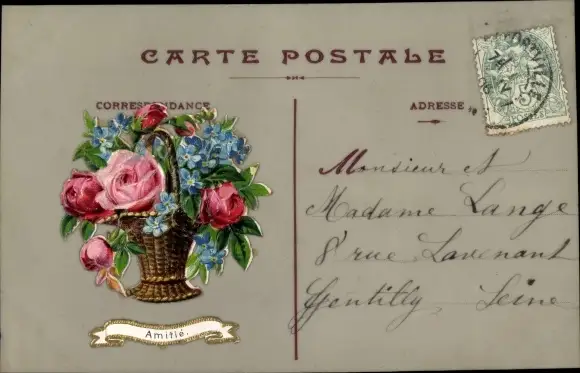 CARTE POSTALE
CORRESPONDANCE
ADRESSE
Monsieur et
Madame Lange
8 rue Lavenant
Gentilly Seine
Amitié.